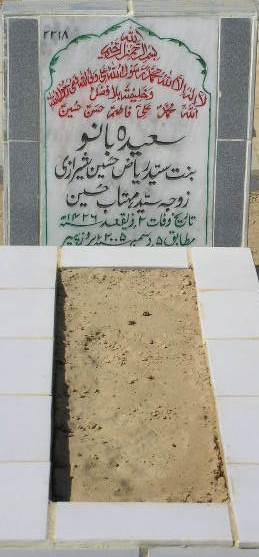 ۲۲۱۸
اللہ
بسم اللہ الرحمن الرحیم
لا الہ الا اللہ محمد رسول اللہ علی ولی اللہ وصی رسول اللہ
وخلیفتہ بلا فصل
اللہ محمد علی فاطمہ حسن حسین
سعیدہ بانو
بنت سید ریاض حسین شیرازی
زوجہ سید مہتاب حسین
تاریخ وفات ۲ ذیقعد ۱۴۲۶ھ
مطابق ۵ دسمبر ۲۰۰۵ء بروز پیر